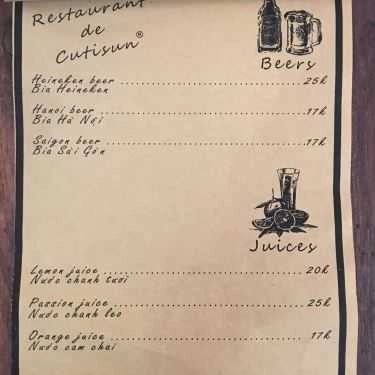 Restaurant
de
Cutisun®
Beers
Heineken beer 25k
Bia Heineken
Hanoi beer 17k
Bia Hà Nội
Saigon beer 17k
Bia Sài Gòn
Juices
Lemon juice 20k
Nước chanh tươi
Passion juice 25k
Nước chanh leo
Orange juice 17k
Nước cam chai